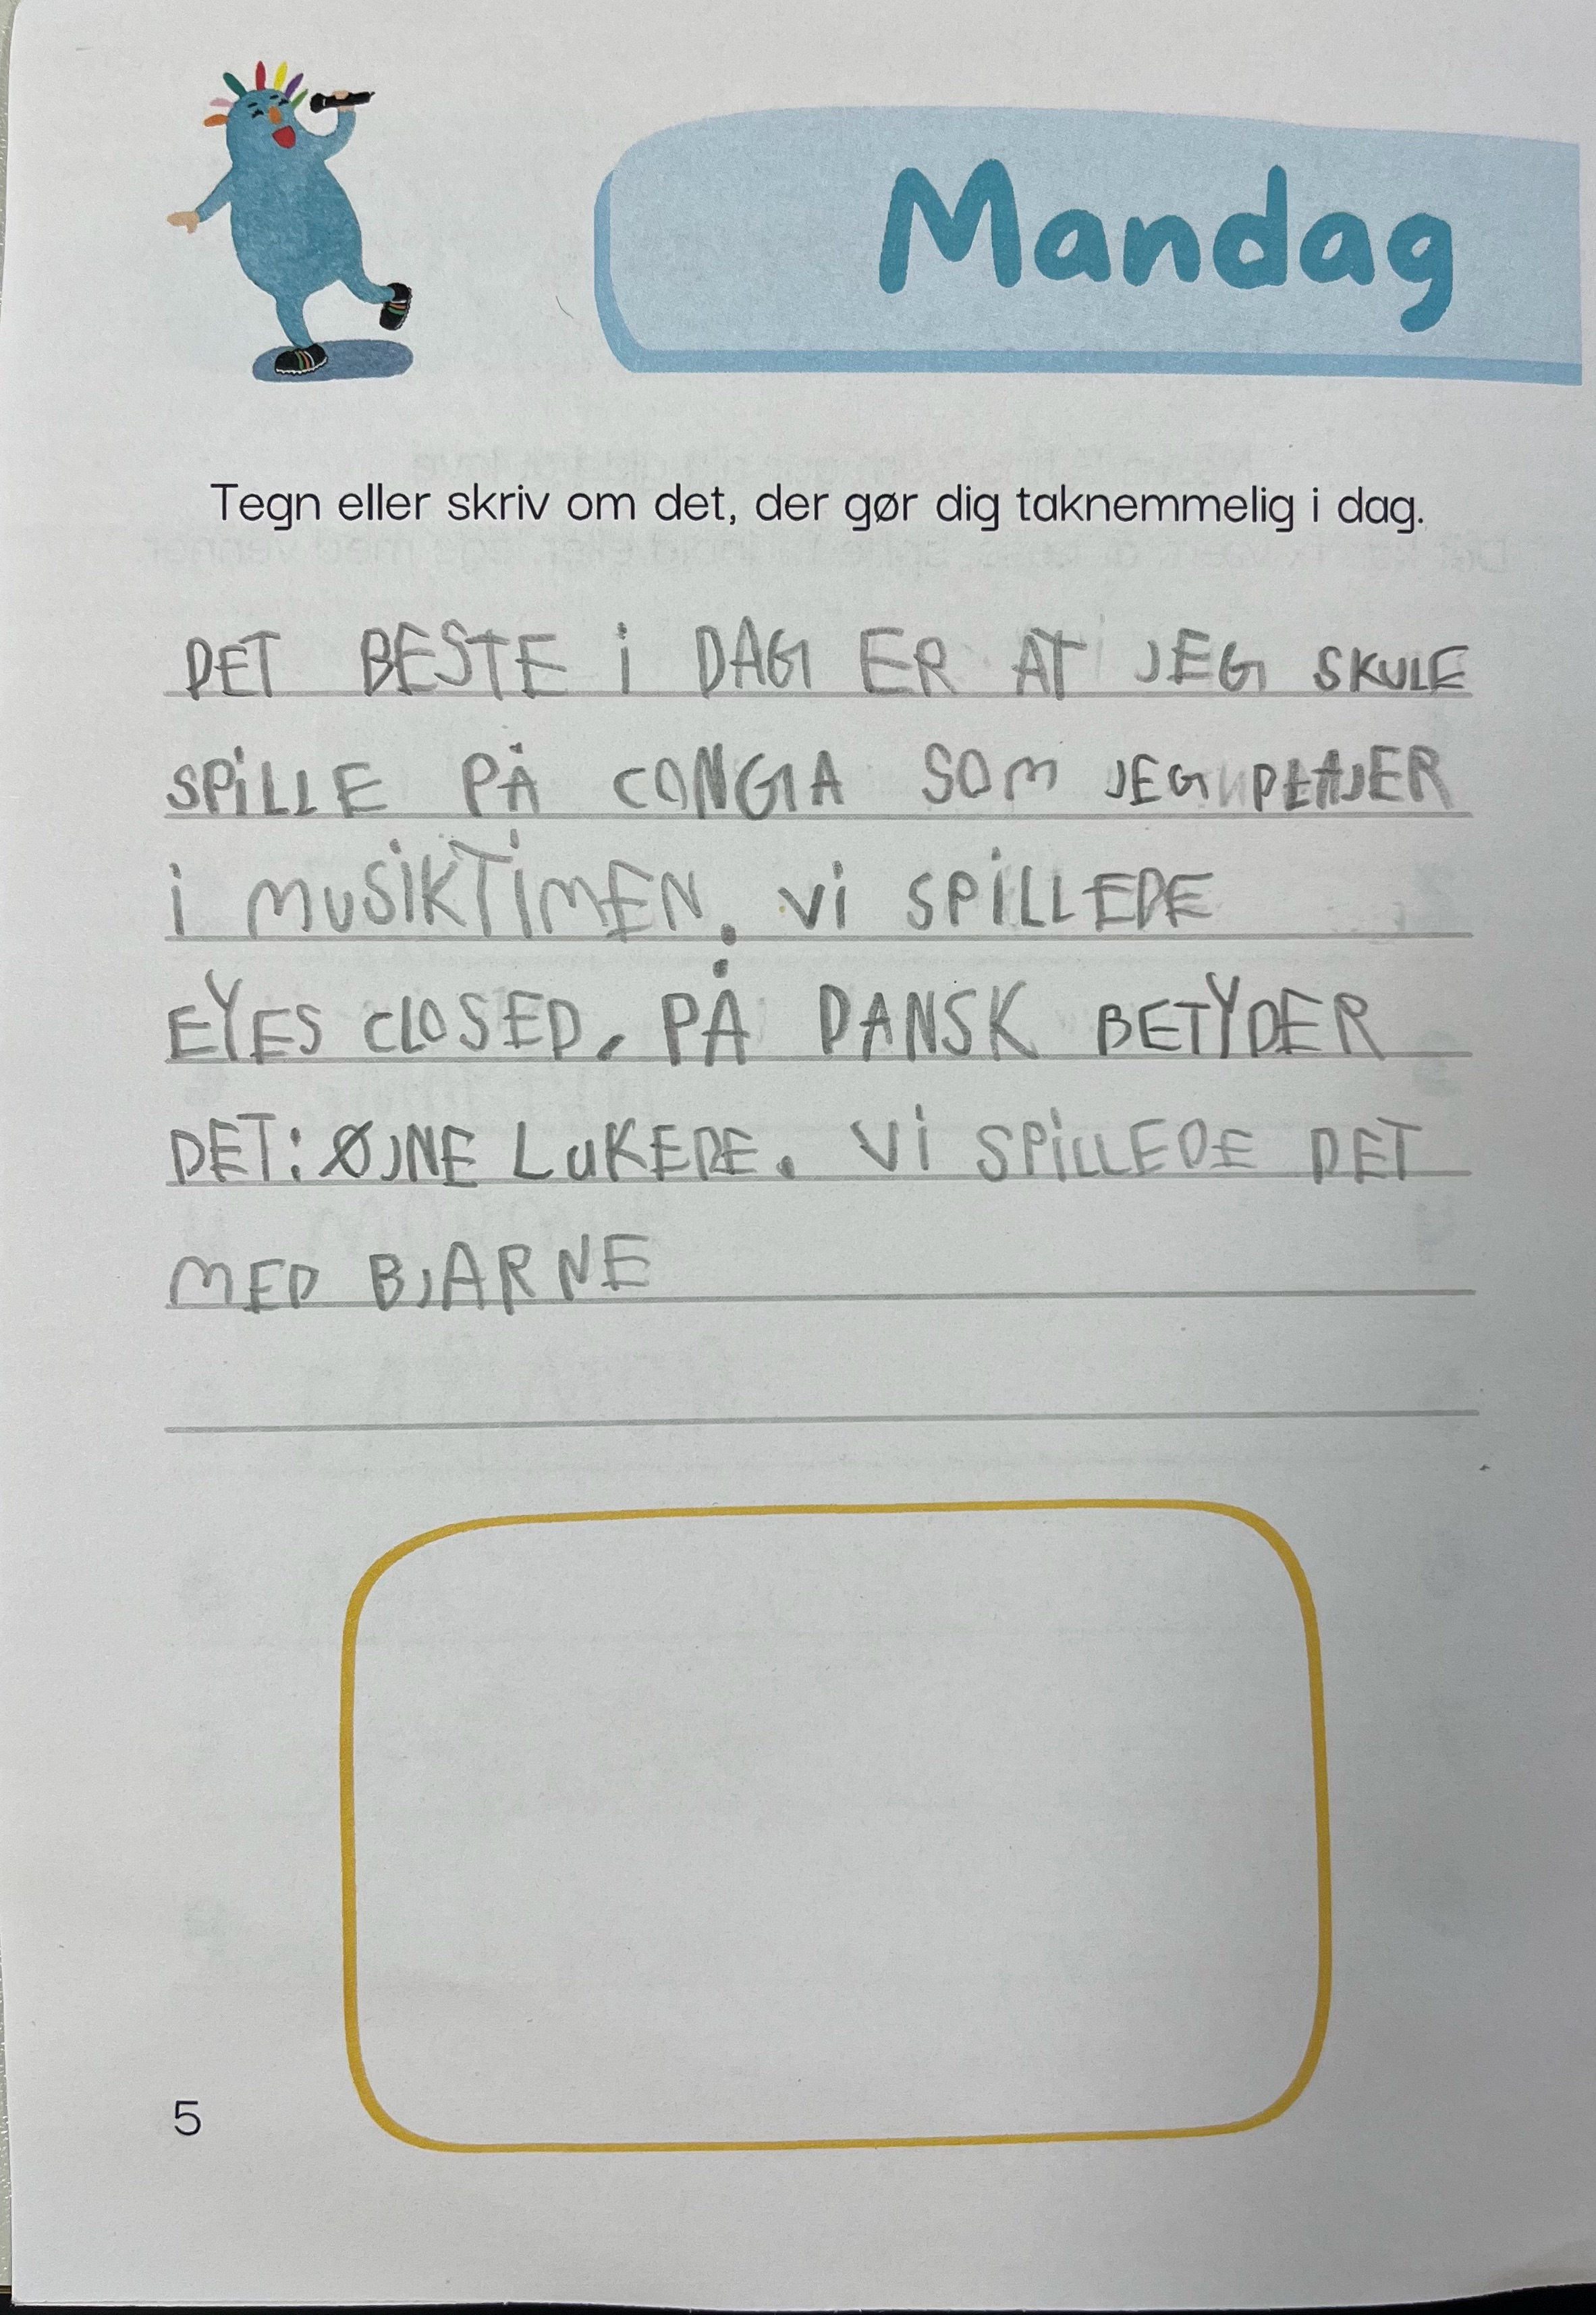 Mandag
Tegn eller skriv om det, der gør dig taknemmelig i dag.
DET BESTE i DAG ER AT JEG SKULE
SPiLLE PÅ CONGA SOM JEG PLAJER
i MUSiKTiMEN. Vi SPiLLEDE
EYES CLOSED. PÅ DANSK BETYDER
DET: ØJNE LUKEDE. Vi SPiLLEDE DET
MED BJARNE
5